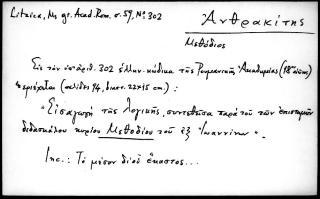 Litzica, Ms gr. Acad. Rom. σ. 59, Nº 302
Ἀνθρακίτης
Μεθόδιος
Εἰς τὸν ὑπ' ἀριθ. 302 ἑλλην. κώδικα τῆς Ρουμανικῆς Ἀκαδημίας (18ου αἰῶν.)
περιέχεται (σελίδες 94, διαστ. 22×15 cm.) :
"Εἰσαγωγὴ τῆς λογικῆς, συντεθεῖσα παρὰ τοῦ τῶν ἐπιστημῶν
διδασκάλου κυρίου Μεθοδίου τοῦ ἐξ Ἰωαννίνων".
Inc.: Τὸ μέσον δι' οὗ ἕκαστος...